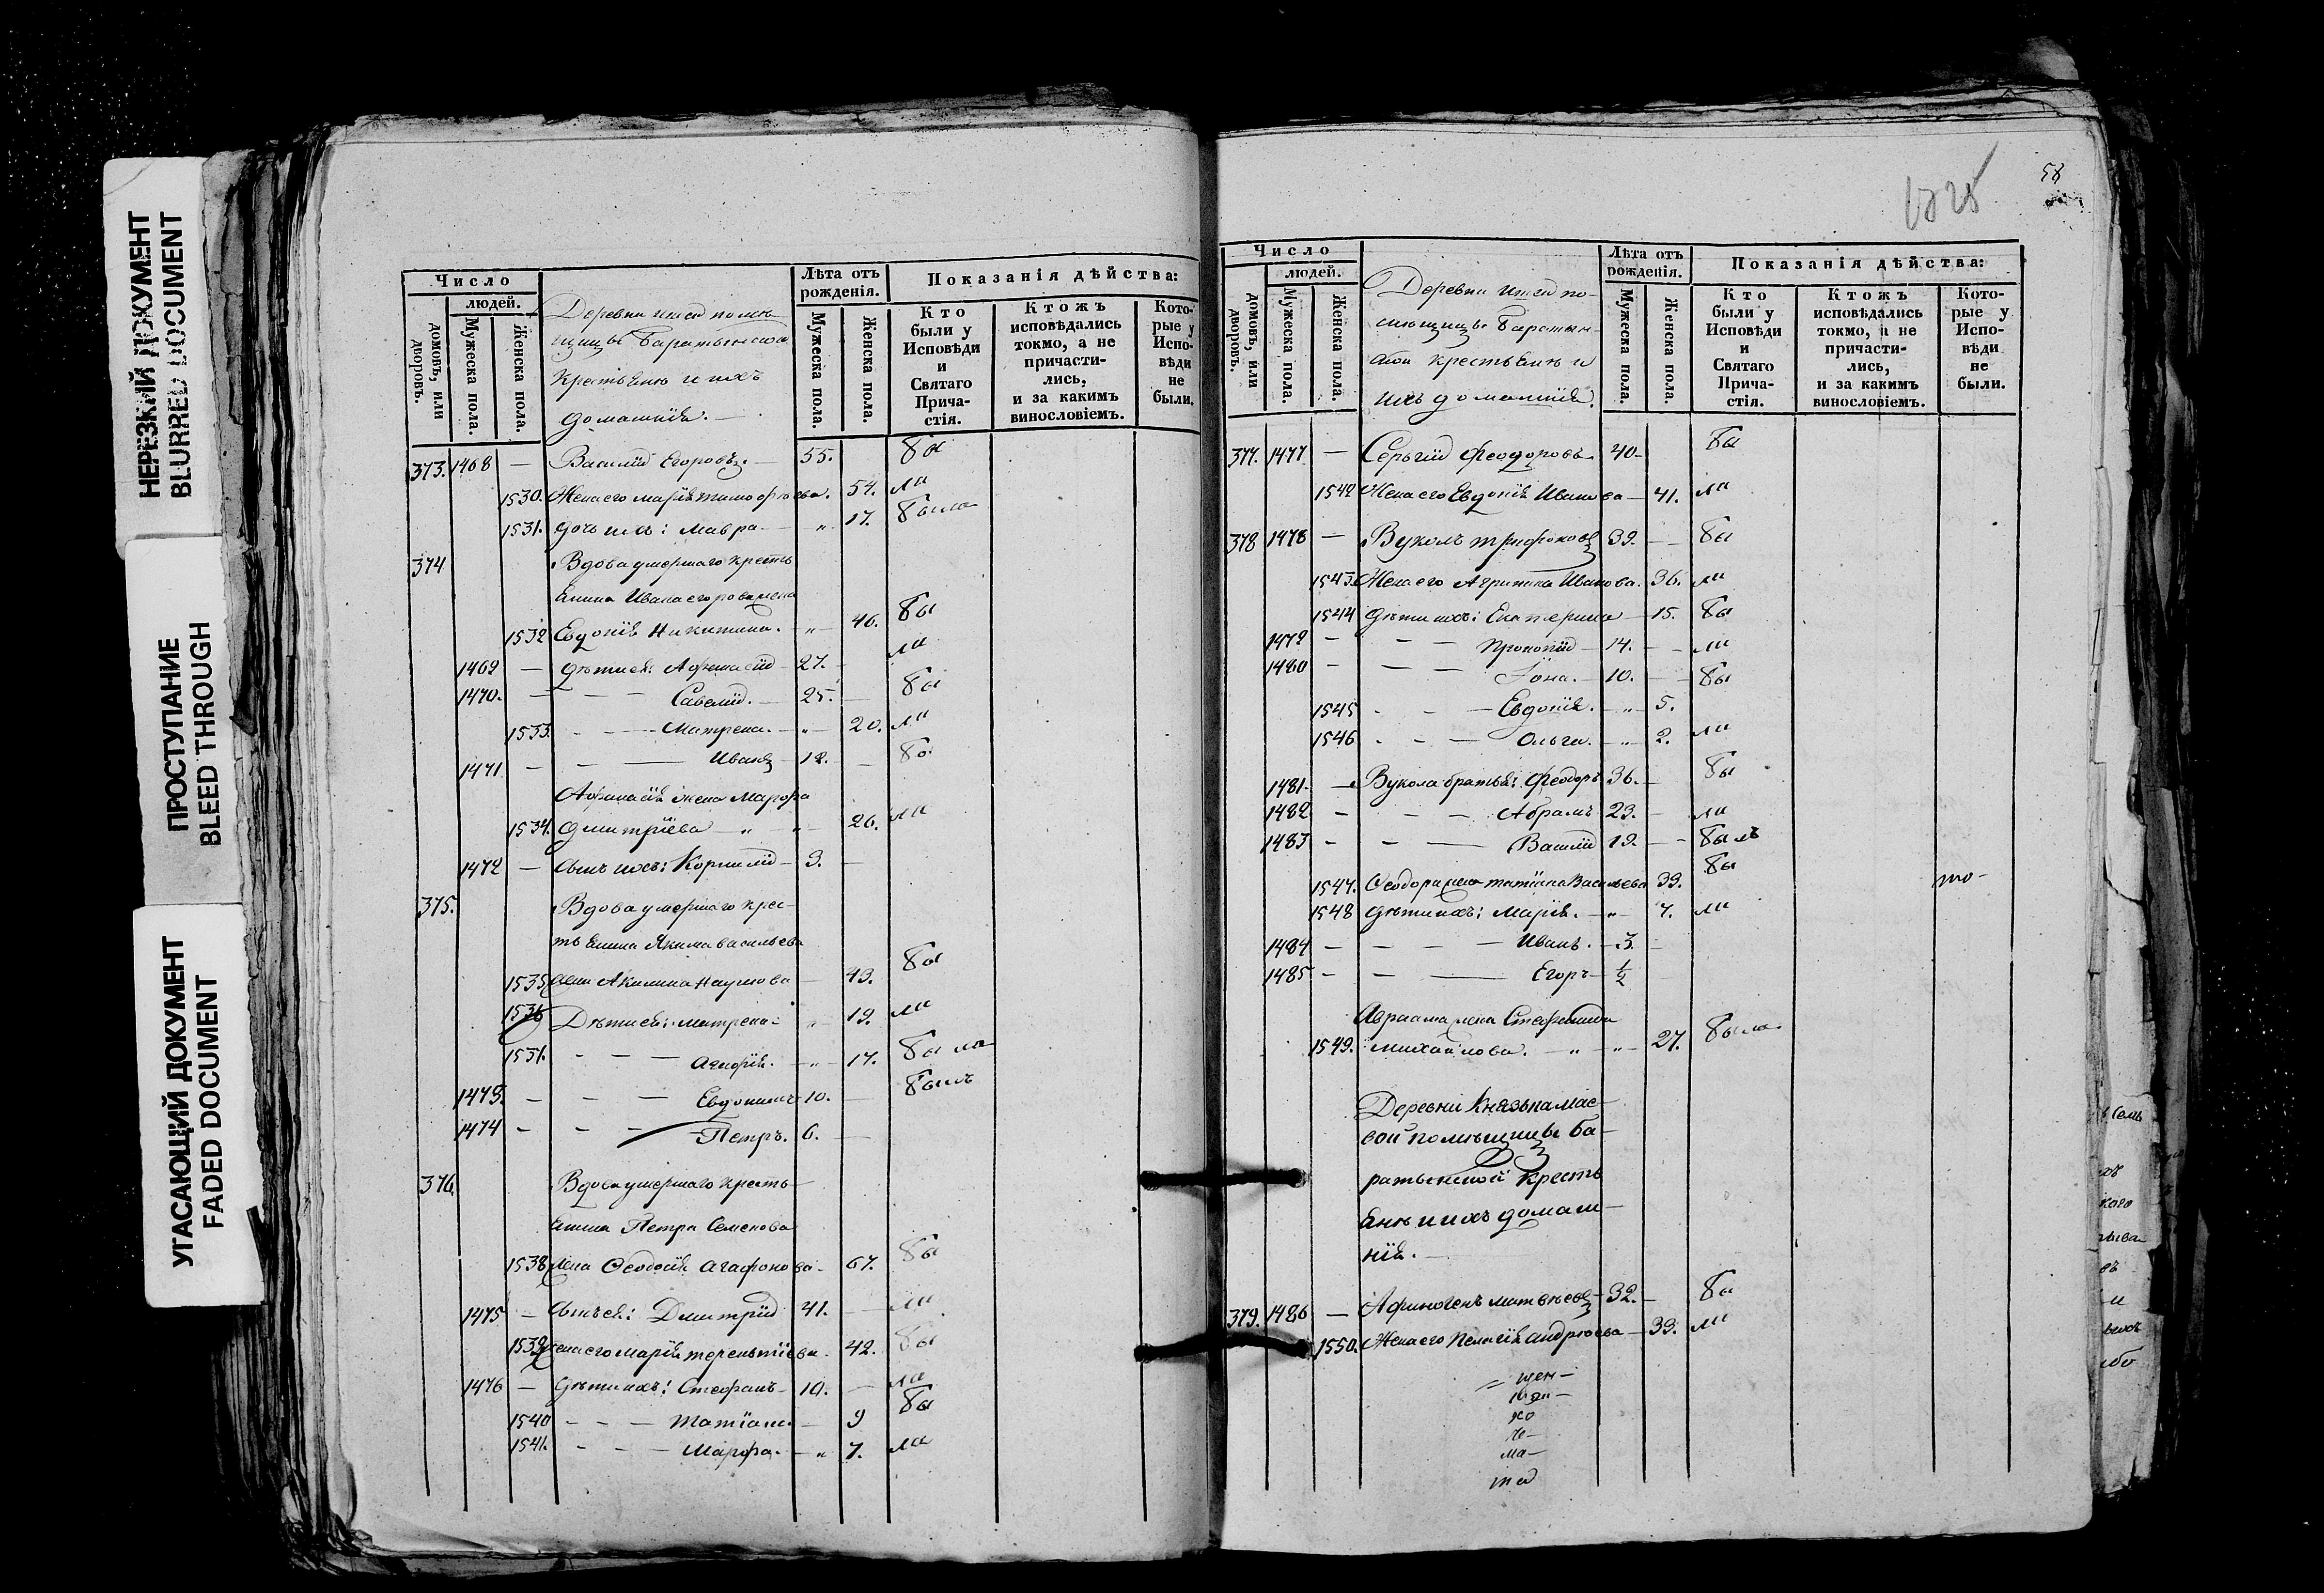 НЕРЕЗКИЙ ДОКУМЕНТ
BLURRED DOCUMENT
ПРОСТУПАНИЕ
BLEED THROUGH
УГАСАЮЩИЙ ДОКУМЕНТ
FADED DOCUMENT
Число
людей.
домовъ, или дворовъ.
Мужеска пола.
Женска пола.
Деревни помѣ-
щицы Баратынской
Крестьяне и ихъ
домашнія.
Лѣта отъ рожденія.
Мужеска пола.
Женска пола.
Показанія дѣйства:
Кто были у Исповѣди и Святаго Прича-стія.
Ктожъ исповѣдались токмо, а не причасти-лись, и за какимъ винословіемъ.
Кото-рые у Испо-вѣди не были.
373. 1468 — Василій Егоровъ. — 55. Бы
1530. Жена его Марія Тимофѣева. 54. ла
1531. дочь ихъ: Мавра — „ — 17. Была
374 Вдова умершаго кресть
янина Ивана Егорова жена
1532 Евдокія Никитина. „ — 46. Бы
1469 — дѣти ея: Афанасій — 27. — ла
1470. — — — Савелій. — 25. — Бы
1533. — — Матрена. — „ — 20. ла
1471 — — — Иванъ — 12. — Бы
Афанасія жена Марфа
1534. Дмитріева — „ — „ — 26. ла
1472 — сынъ ихъ: Корнилій — 3. —
375. Вдова умершаго крес-
тьянина Якима Васильева
1535 жена Акилина Наумова — 43. Бы
1536 Дѣти ея: Матрена: „ 19. ла
1537. — — — Агафія. — „ — 17. Была
1473. — — — Евдокимъ 10. — Былъ
1474 — — — Петръ. 6. —
376. Вдова умершаго кресть
янина Петра Семенова
1538 жена Ѳеодосія Агафонова — 67. Бы
1475 — сынъ ея: Дмитрій 41. — ла
1539 жена его Марія Терентіева. 42. Бы
1476 — дѣти ихъ: Стефанъ — 10. — ла
1540 — — — Татіана — 9 Бы
1541. — — — Марфа. — „ 7. ла
58
Число
людей.
домовъ, или дворовъ.
Мужеска пола.
Женска пола.
Деревни по-
мѣщицы Баратын-
ской крестьяне и
ихъ домашнія.
Лѣта отъ рожденія.
Мужеска пола.
Женска пола.
Показанія дѣйства:
Кто были у Исповѣди и Святаго Прича-стія.
Ктожъ исповѣдались токмо, а не причасти-лись, и за какимъ винословіемъ.
Кото-рые у Испо-вѣди не были.
377. 1477 — Сергій Феодоровъ 40 — Бы
1542 Жена его Евдокія Иванова — 41. ла
378 1478 — Вуколъ Трифоновъ 39. — — Бы
1543. Жена его Агрипина Иванова. 36. ла
1544 дѣти ихъ: Екатерина — 15. Бы
1479 — — — Прокопій — 14. — — ла
1480 — — — Іона. — 10. — — Бы
1545 — — — Евдокія. — „ — 5.
1546 — — — Ольга. — „ — 2. ла
1481. — Вукола братья: Феодоръ 36. — Бы
1482 — — — Абрамъ 23. — ла
1483 — — — Василій 19. — — Былъ
1547. Ѳеодора жена Татіана Васильева 39. Бы
1548 дѣти ихъ: Марія. — „ — 7. ла
1484 — — — Иванъ. — 3. —
1485 — — — Егоръ — ½
Авраама жена Стефанида
1549. Михайлова. — „ — „ — 27. Была
Деревни
вой помѣщицы Ба-
ратынской кресть
яне и ихъ домаш-
нія. —
379. 1486 — Афиногенъ Матвѣевъ — 32. — Бы
1550. Жена его Пелагія Андрѣева — 39. ла
щен-
но